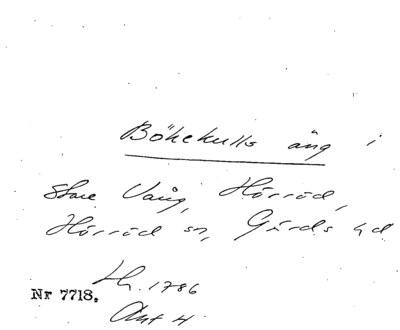 Bökekulls äng i
Stare Vång, Hörröd,
Hörröd sn, Gärds hd
Lh. 1786
Nr 7718.
Akt 4